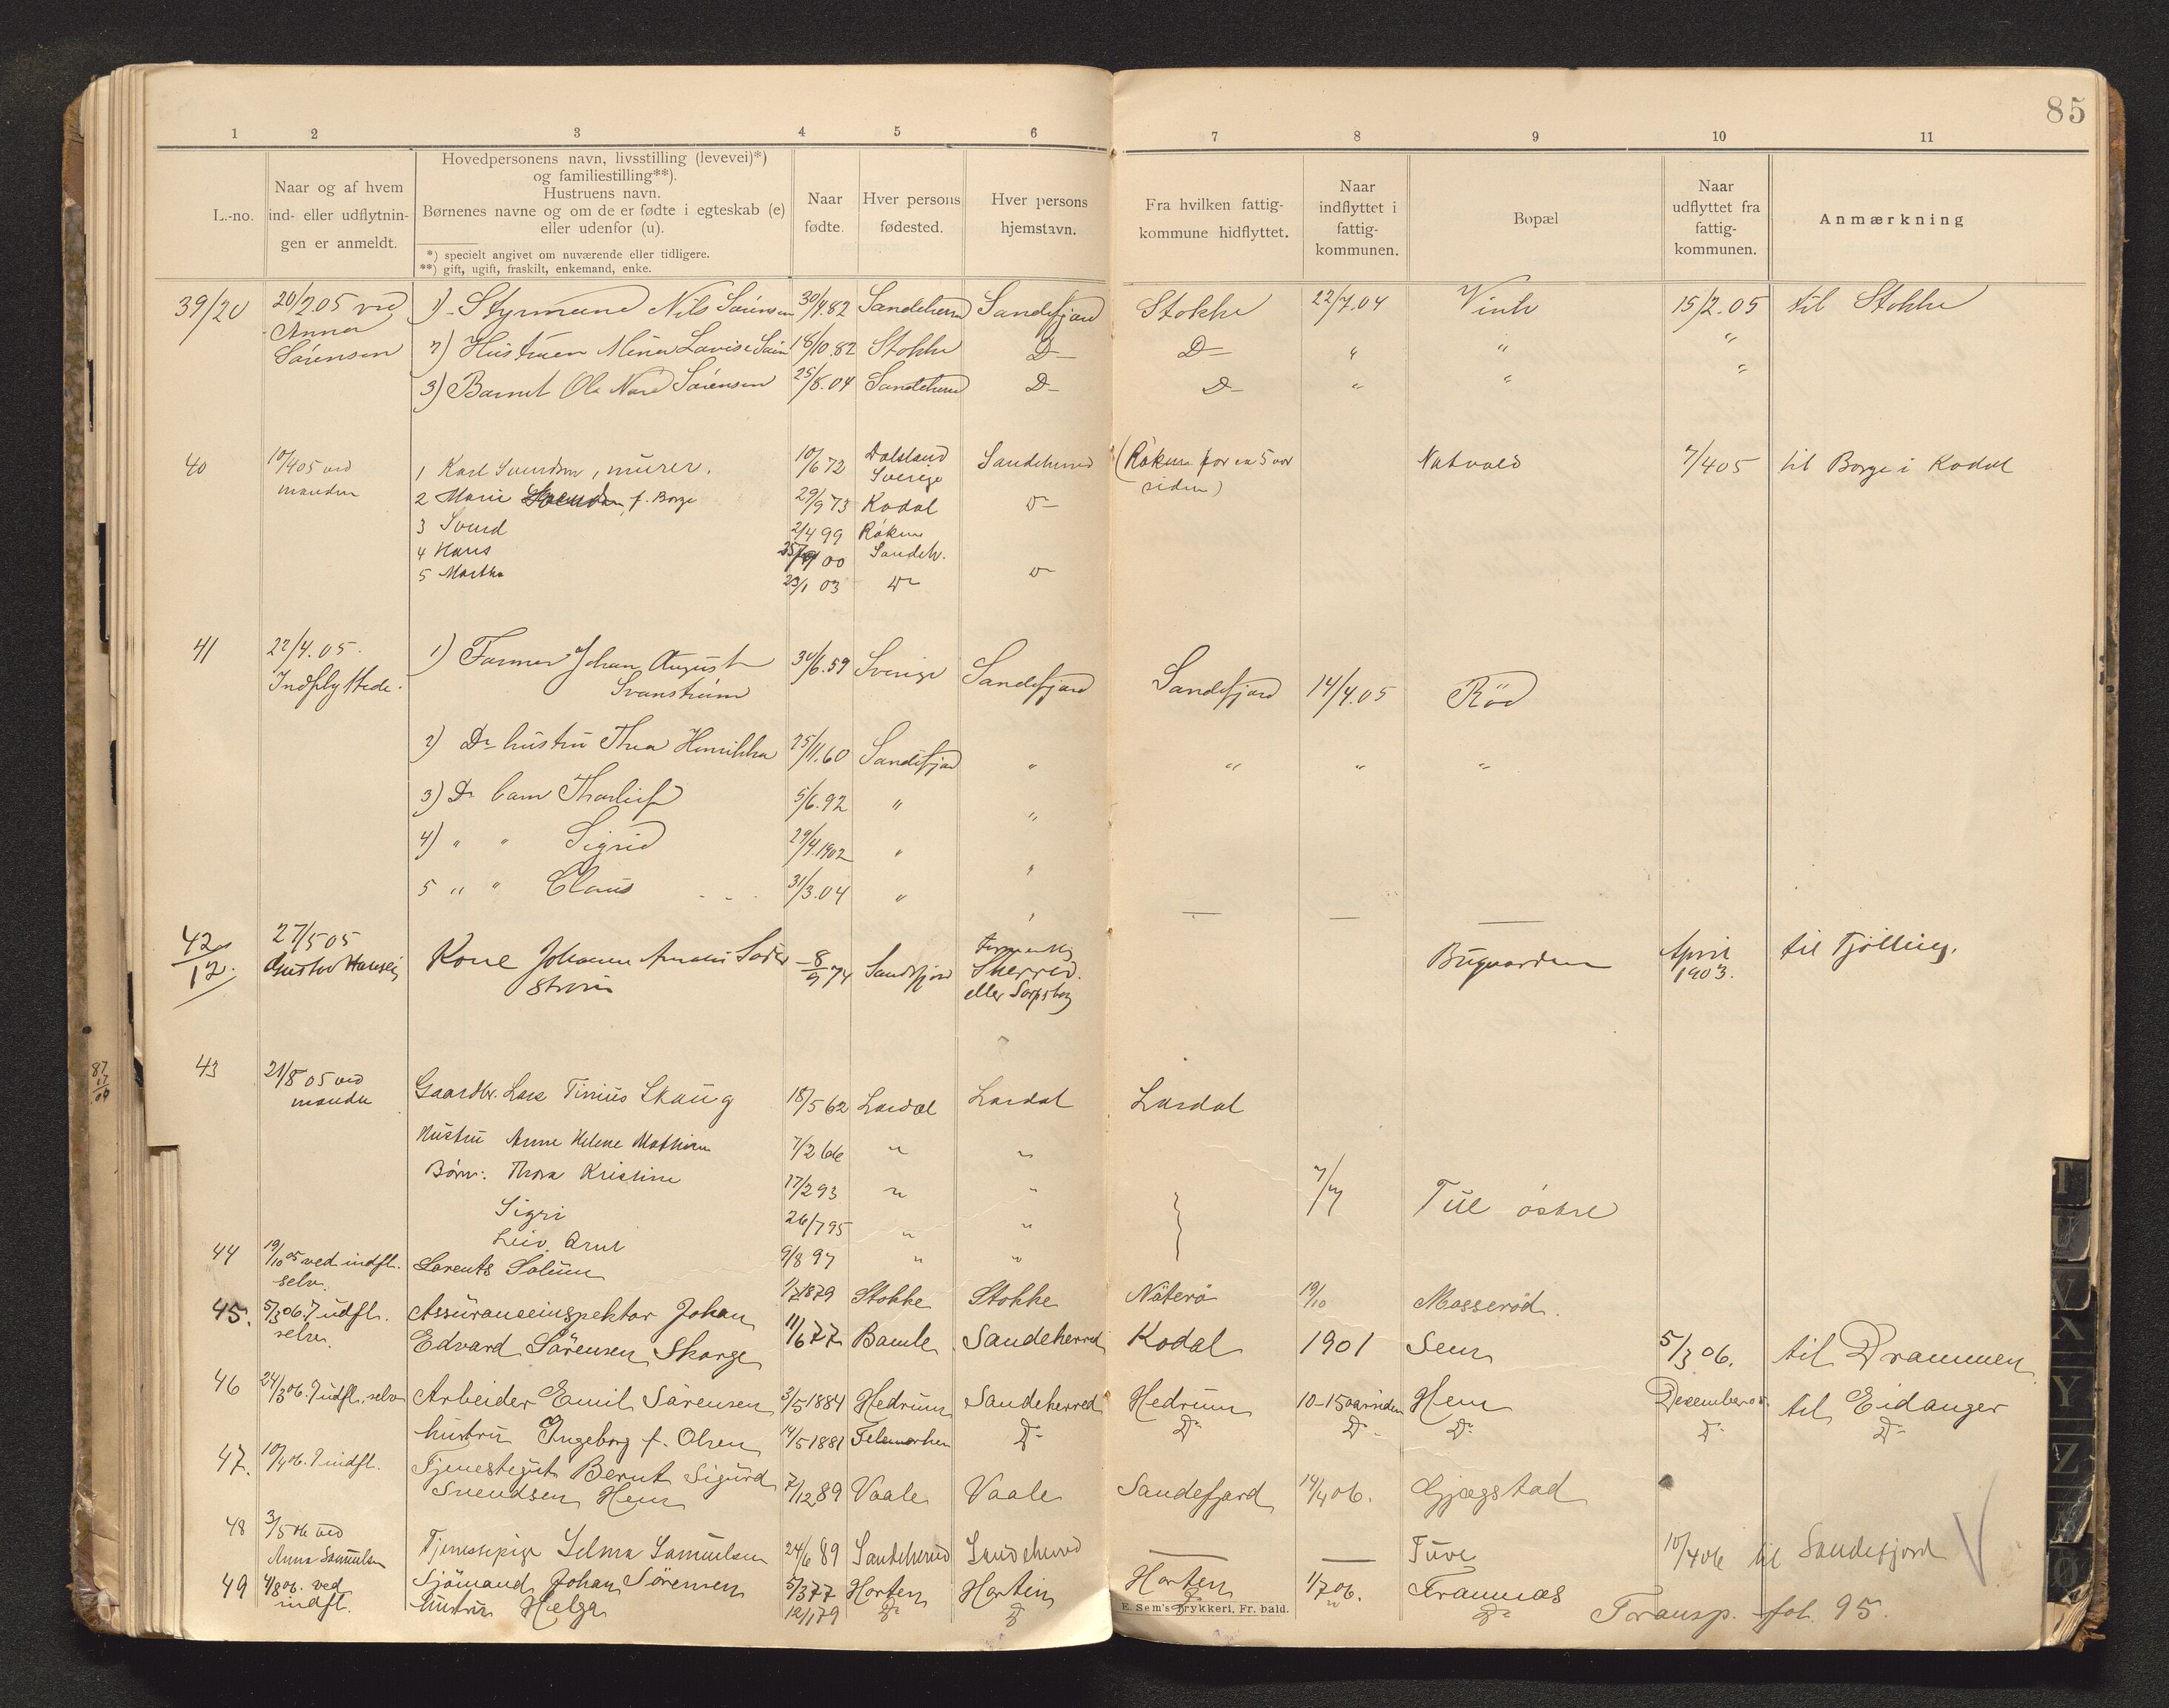 85
1 2 3 4 5 6 7 8 9 10 11
L.-no.
Naar og af hvem
ind- eller udflytnin-
gen er anmeldt.
Hovedpersonens navn, livsstilling (levevei)*)
og familiestilling**).
Hustruens navn.
Børnenes navne og om de er fødte i egteskab (e)
eller udenfor (u).
*) specielt angivet om nuværende eller tidligere.
**) gift, ugift, fraskilt, enkemand, enke.
Naar
fødte.
Hver persons
fødested.
Hver persons
hjemstavn.
Fra hvilken fattig-
kommune hidflyttet.
Naar
indflyttet i
fattig-
kommunen.
Bopæl
Naar
udflyttet fra
fattig-
kommunen.
Anmærkning
39/20 20/2.05 ved 1) Styrmand Nils Sørensen 30/1.82 Sandeherred Sandefjord Stokke 22/7.04 Vink 15/2.05 til Stokke
Anna
Sørensen 2) Hustruen Mina Lovise 18/10.82 Stokke D- D- " " "
3) Barnet Ola Sørensen 25/8.04 Sandeherred D- D- " " "
40 10/4 05 ved 1 Karl Svendsen, murer. 10/6 72 Dalsland Sandeherred (Råkna for en 5 aar Natvald 7/4 05 til Borge i Kodal
manden Sverige siden)
2 Marie f. Borge 29/9 73 Kodal D-
3 Svend 2/4 99 Råkna
4 Hans 00 Sandeh.
5 Martha 23/1 03 D- D-
41 22/4.05. 1) Farmer Johan August 30/6.59 Sverige Sandefjord Sandefjord 14/4.05 Rød
Indflyttede. Svanstrøm
2) Ds hustru Thea Henrikka 25/11.60 Sandefjord " " " "
3) Ds barn Thorleif 5/6.92 " "
4) " " Sigrid 29/4.1902 " "
5 " " Claus 31/3.04 " "
42 27/5 05 Kone Johanne Amalie Söder 8/9 74 Sandefjord Bugaarden April til Tjølling.
12. Gustav Hansen strøm Sherred. 1903.
eller Sarpsborg
43 21/8 05 ved Gaardbr. Lars Tinius Skaug 18/5 62 Lardal Lardal Lardal
manden
Hustru Anne Helene Mathisen 7/2 66 " "
Børn: Thora Kristine 17/2 93 " " 7/7 Tue østre
Sigri 26/7 95 " "
Leiv Arnt 9/8 97 " "
44 19/10 05 ved indfl. Lorents Solum 1/7 1879 Stokke Stokke Nøterø 19/10 Mosserød.
selv.
45. 5/3 06. ? udfl. Assuranceinspektør Johan 11/6 77 Bamle Sandeherred Kodal 1901 Sem 5/3 06. til Drammen
selv. Edvard Sørensen Skorge
46 24/3 06. ? udfl. selv Arbeider Emil Sørensen 3/5 1884 Hedrum Sandeherred Hedrum 10-15 aar siden Hem Desember 05. til Eidanger
hustru Ingeborg f. Olsen 14/5 1881 Telemarken D- D- D- D- D- D-
47. 10/4 06. ? indfl. Tjenestegut Bernt Sigurd 7/12 89 Vaale Vaale Sandefjord 14/4 06. Gjægstad
Svendsen Hem
48 3/5 06 ved Tjenestepige Selma Samuelsen 24/6 89 Sandeherred Sandeherred Tuve 10/4 06 til Sandefjord
Anna Samuelsen
49 4/8 06. ved Sjømand Johan Sørensen 5/3 77 Horten Horten Horten 1/7 06. Framnæs
indfl. hustru Helga 12/1 79 D- D- D- " D-
E. Sem's Trykkeri, Fr.hald.
Transp. fol. 95.
87
17
09
T
U
V
X
Y
Z
Æ
Ø